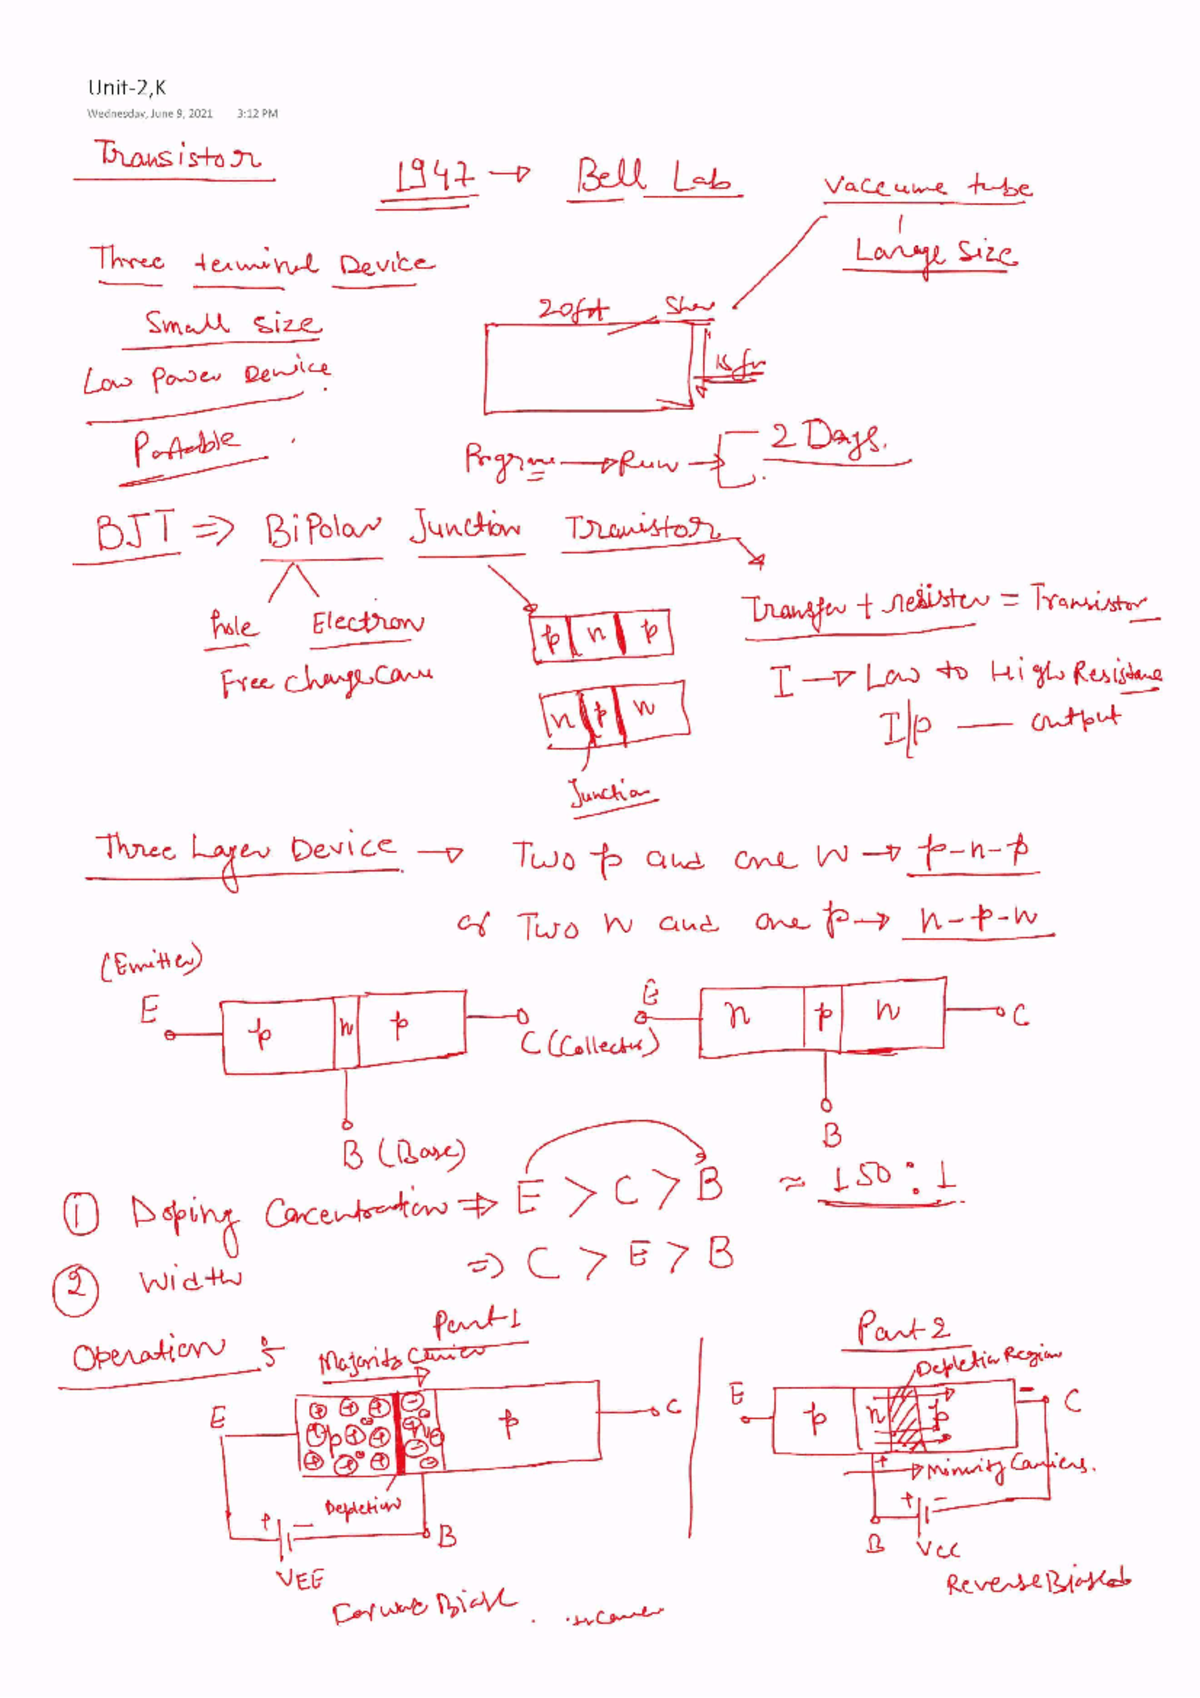 Unit-2,K
Wednesday, June 9, 2021 3:12 PM
Transistor
1947 → Bell Lab
Vaccume tube
Large Size
Three terminal Device
Small Size
Low Power Device
Portable
20ft
15 ft
Programe → Run → 2 Days.
BJT ⇒ BiPolar Junction Transistor
hole Electron
Free charge
p n p
n p n
Junction
Transfer + resister = Transistor
I → Low to High Resistance
I/p — output
Three Layer Device → Two p and one n → p-n-p
or Two n and one p → n-p-n
(Emitter)
E p n p C (Collector)
B (Base)
E n p n C
B
① Doping Concentration ⇒ E > C > B ≈ 150:1
② Width ⇒ C > E > B
Operation :
Part 1
Majority Carrier
E p n p C
Depletion
+ − B
VEE
Forward Biase
Part 2
Depletion Region
E p n p − C
+ → Minority Carriers.
+ −
B VCC
Reverse Biased